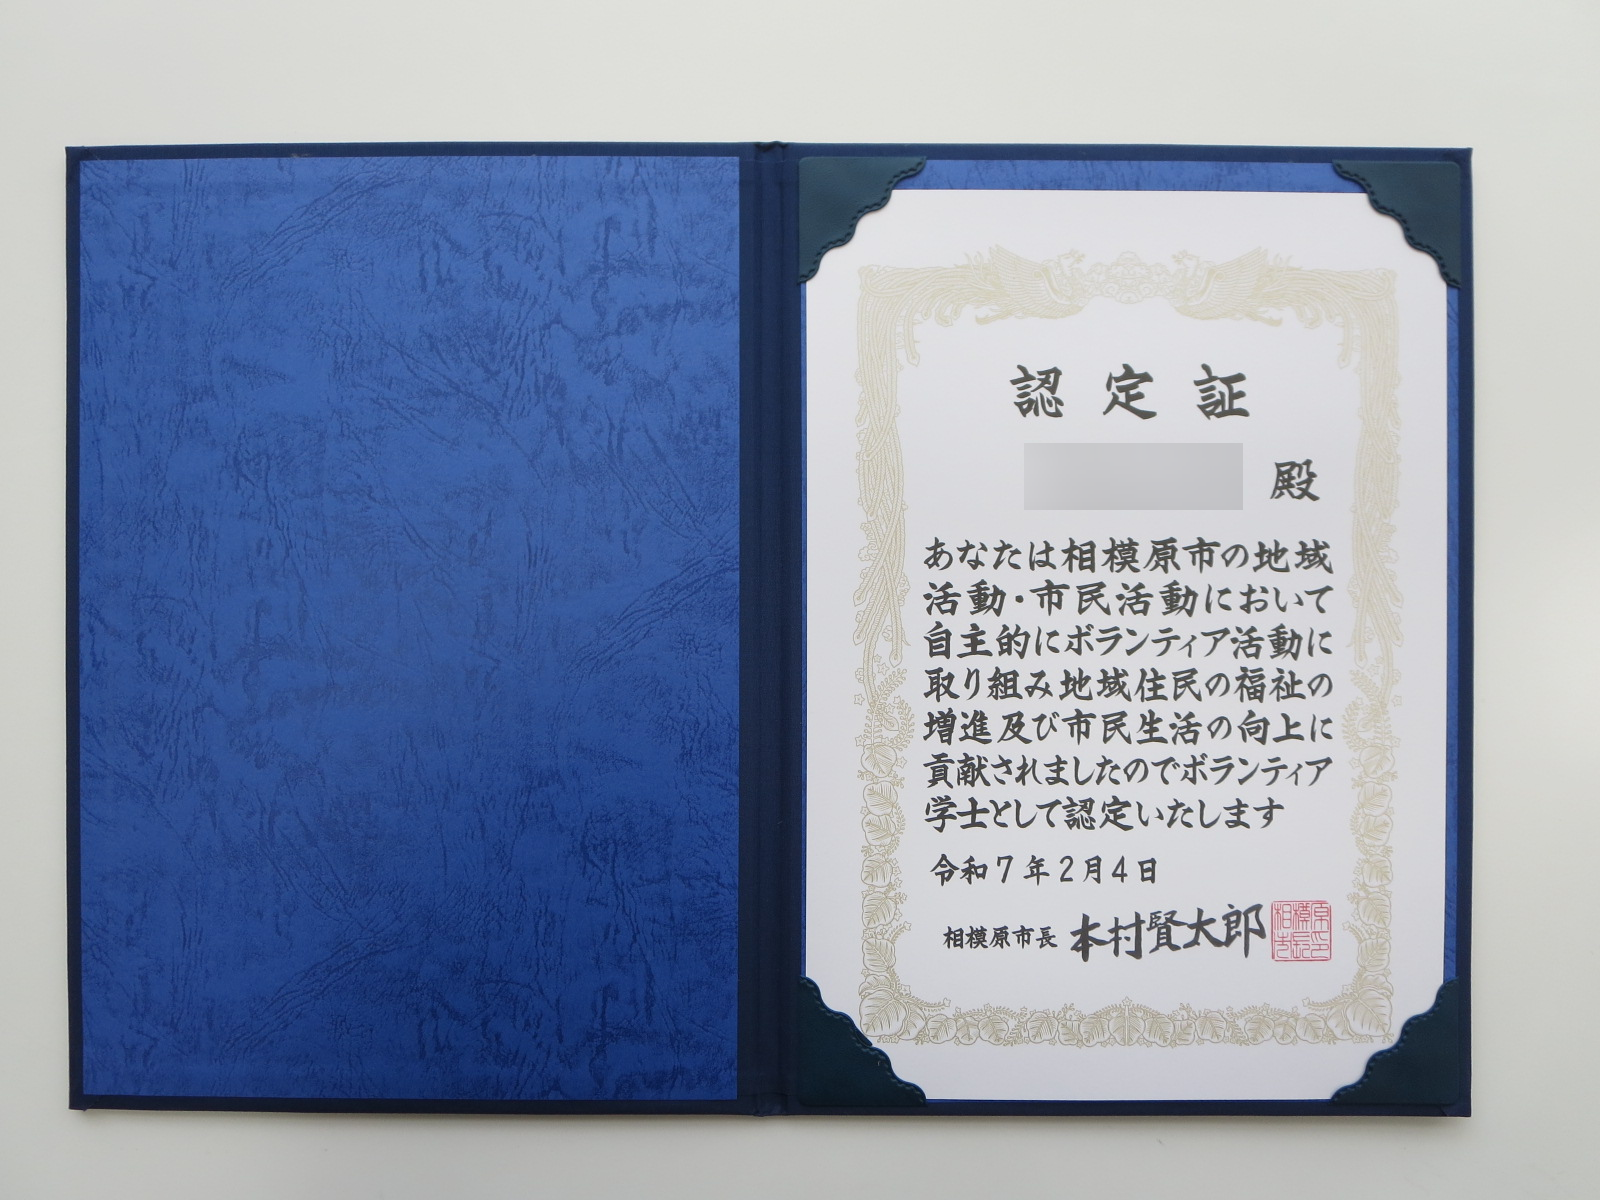 認定証
殿
あなたは相模原市の地域
活動・市民活動において
自主的にボランティア活動に
取り組み地域住民の福祉の
増進及び市民生活の向上に
貢献されましたのでボランティア
学士として認定いたします
令和7年2月4日
相模原市長 本村賢太郎
相模原市長印